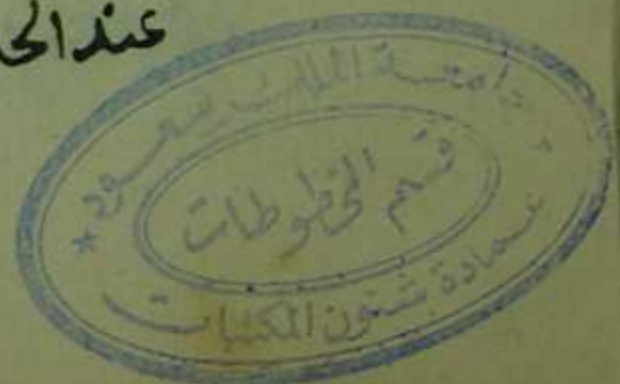 عند الحا
جامعة الملك سعود
قسم المخطوطات
عمادة شئون المكتبات